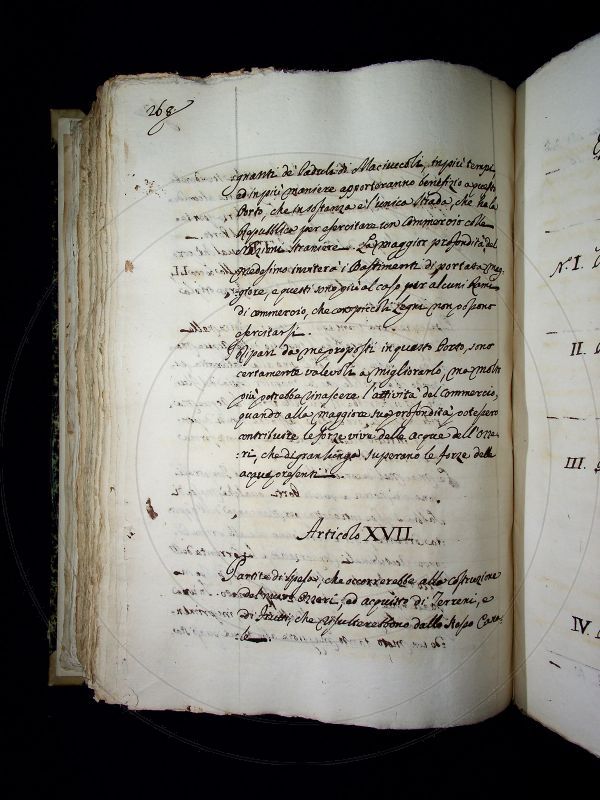 268
quanti de Paduli di Maciuccoli, in più tempi,
ed in più maniere apporteranno benefizio a questo
Porto, che in sostanza è l'unica strada, che ha la
Repubblica per esercitare un Commercio colle
Nazioni straniere. La maggior profondità del
medesimo inviterà i Bastimenti di portata mag-
:giore, e questi sono più al caso per alcuni Rami
di commercio, che con piccoli Legni non possono
esercitarsi.
Ripari da me proposti in questo Porto, sono
certamente valevoli a migliorarlo, ma molto
più potrebbe rinascere l'attività del Commercio,
quando alla maggiore sua profondità potessero
contribuire le forze vive delle acque dell'Ozze-
:ri, che di gran lunga superano le forze delle
acque presenti.
Articolo XVII.
Partite di spesa, che occorrerebbe alla costruzione
del nuovo Ozzeri, ed acquisto di Terreni, e
di Frutti, che risulterebbono dallo stesso Cana-
le
N. I.
II.
III.
IV.